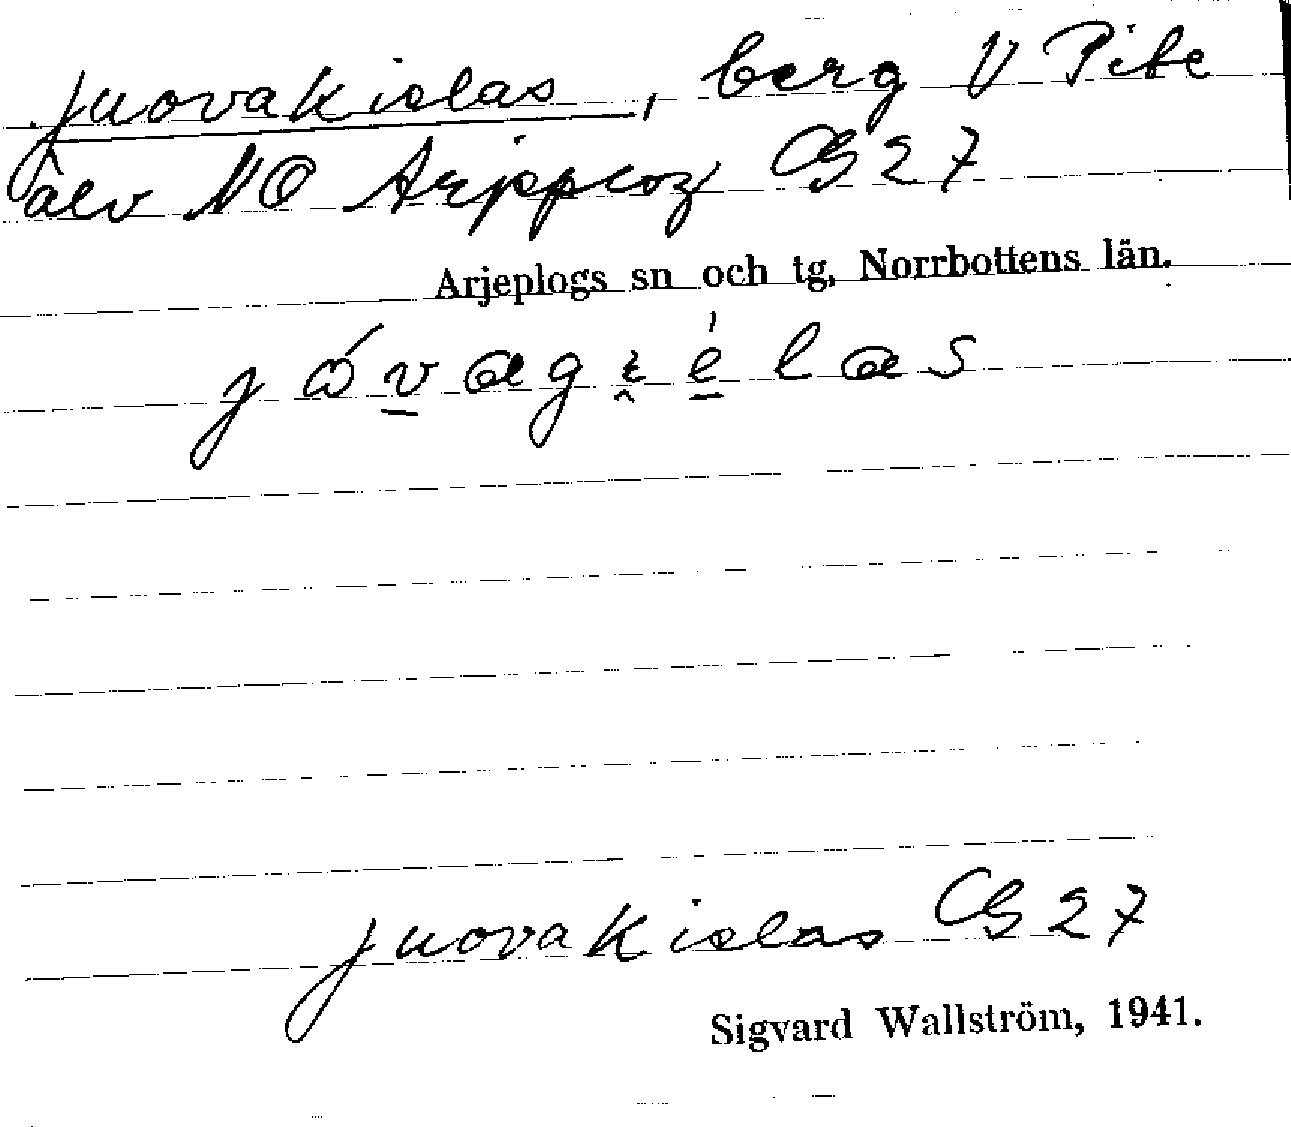 juovakielas, berg V Pite
älv NO Arjeplog CG 27
Arjeplogs sn och tg, Norrbottens län.
juovakielas CG 27
Sigvard Wallström, 1941.